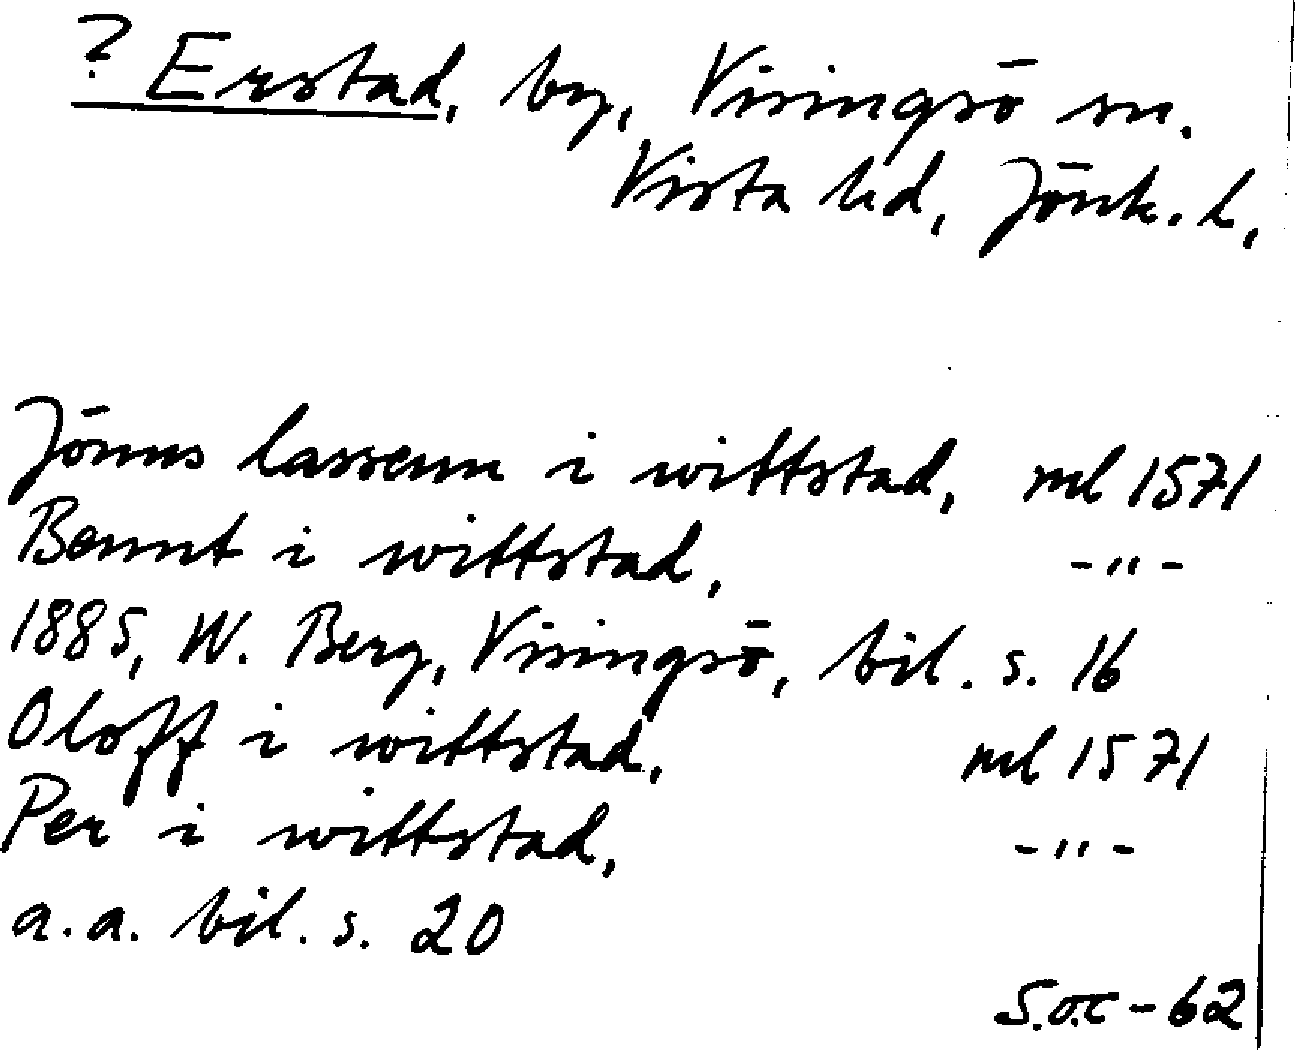 ? Erstad, by, Visingsö sn.
Vista hd, Jönk. l,
Jönns lassenn i wittstad, ml 1571
Bennt i wittstad, -"-
1885, W. Berg, Visingsö, bil. s. 16
Oloff i wittstad, ml 1571
Per i wittstad, -"-
a.a. bil. s. 20
S.o.c - 62